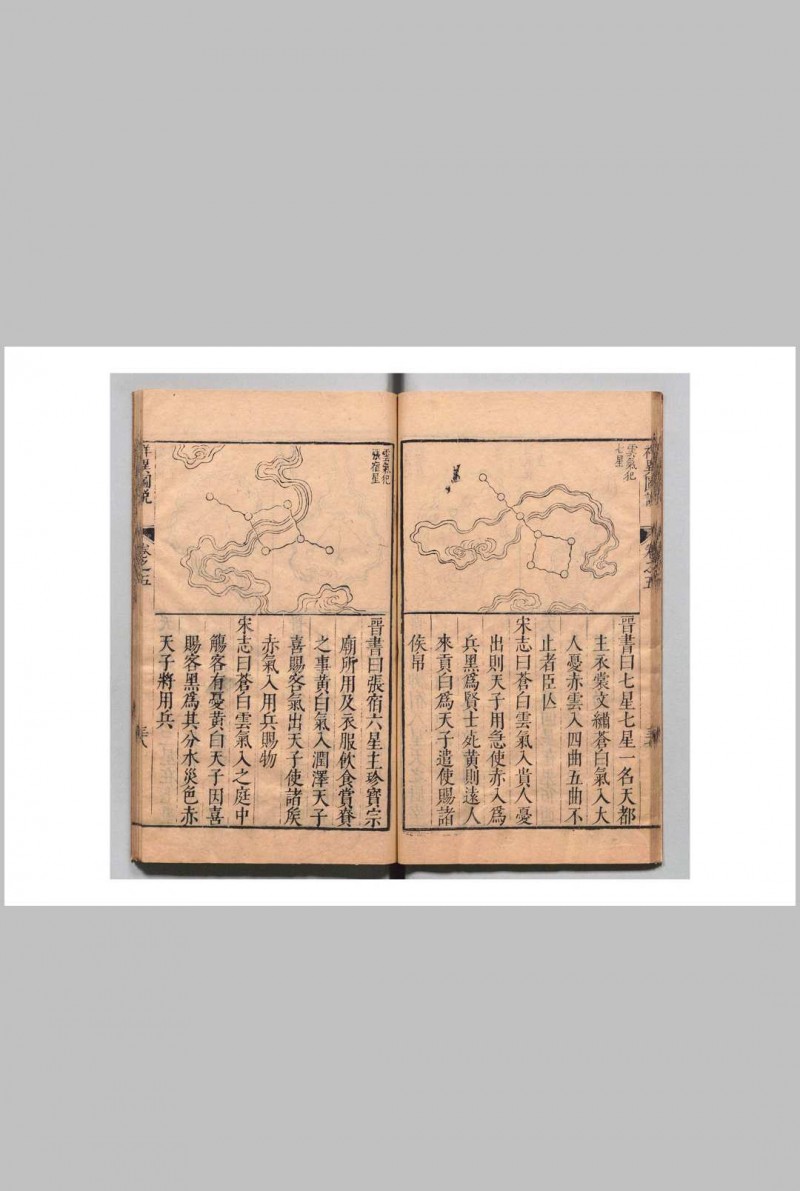 雲氣犯
七星
晉書曰七星七星一名天都
主衣裳文繡蒼白氣入大
人憂赤雲入四曲五曲不
止者臣仄
宋志曰蒼白雲氣入貴人憂
出則天子用急使赤入爲
兵黑爲賢士死黃則遠人
來貢白爲天子遣使賜諸
侯帛
雲氣犯
張宿星
晉書曰張宿六星主珍寶宗
廟所用及衣服飲食賞賚
之事黃白氣入潤澤天子
喜賜客氣出天子使諸矦
赤氣入用兵賜物
宋志曰蒼白雲氣入之庭中
觴客有憂黃白天子因喜
賜客黑爲其分水災色赤
天子將用兵
祥異圖說
卷之五